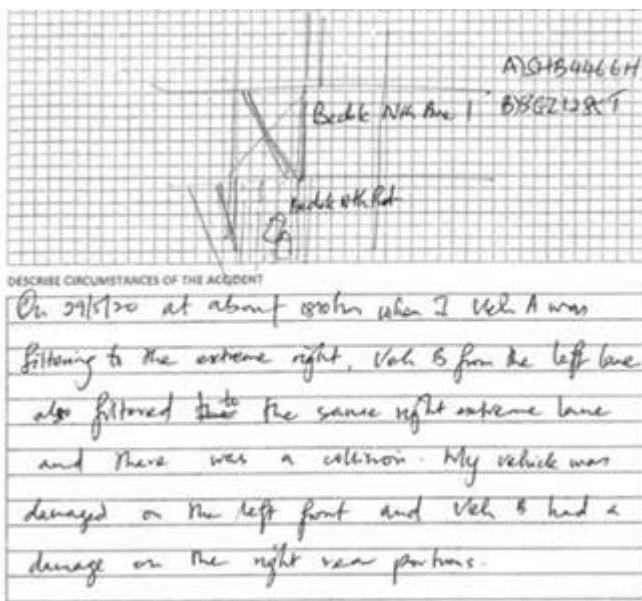 A) SHB4466H
Bedok Nth Ave 1
Bedok Nth Rd
DESCRIBE CIRCUMSTANCES OF THE ACCIDENT
On 29/5/20 at about when I Veh A was
filtering to the extreme right, Veh B from the left lane
also filtered to the same right extreme lane
and there was a collision. My vehicle was
damaged on the left front and Veh B had a
damage on the right rear portions.